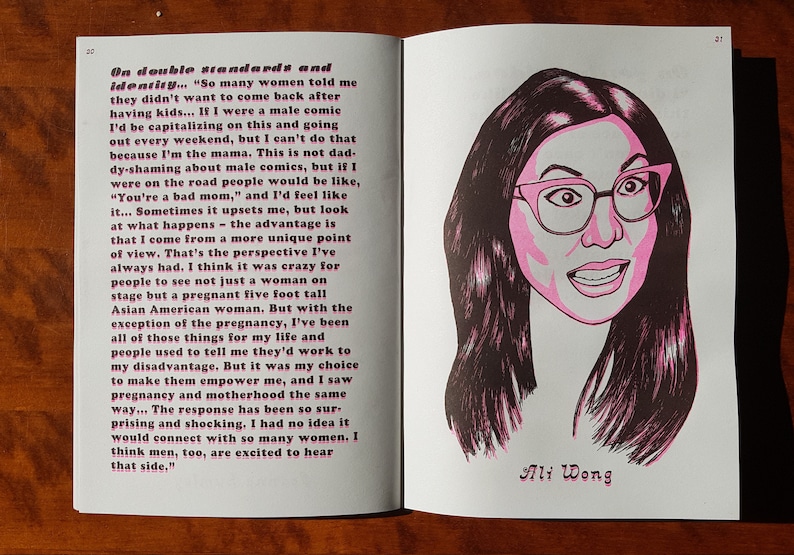 20
On double standards and
identity... “So many women told me
they didn’t want to come back after
having kids... If I were a male comic
I’d be capitalizing on this and going
out every weekend, but I can’t do that
because I’m the mama. This is not dad-
dy-shaming about male comics, but if I
were on the road people would be like,
“You’re a bad mom,” and I’d feel like
it... Sometimes it upsets me, but look
at what happens – the advantage is
that I come from a more unique point
of view. That’s the perspective I’ve
always had. I think it was crazy for
people to see not just a woman on
stage but a pregnant five foot tall
Asian American woman. But with the
exception of the pregnancy, I’ve been
all of those things for my life and
people used to tell me they’d work to
my disadvantage. But it was my choice
to make them empower me, and I saw
pregnancy and motherhood the same
way... The response has been so sur-
prising and shocking. I had no idea it
would connect with so many women. I
think men, too, are excited to hear
that side.”
21
Ali Wong